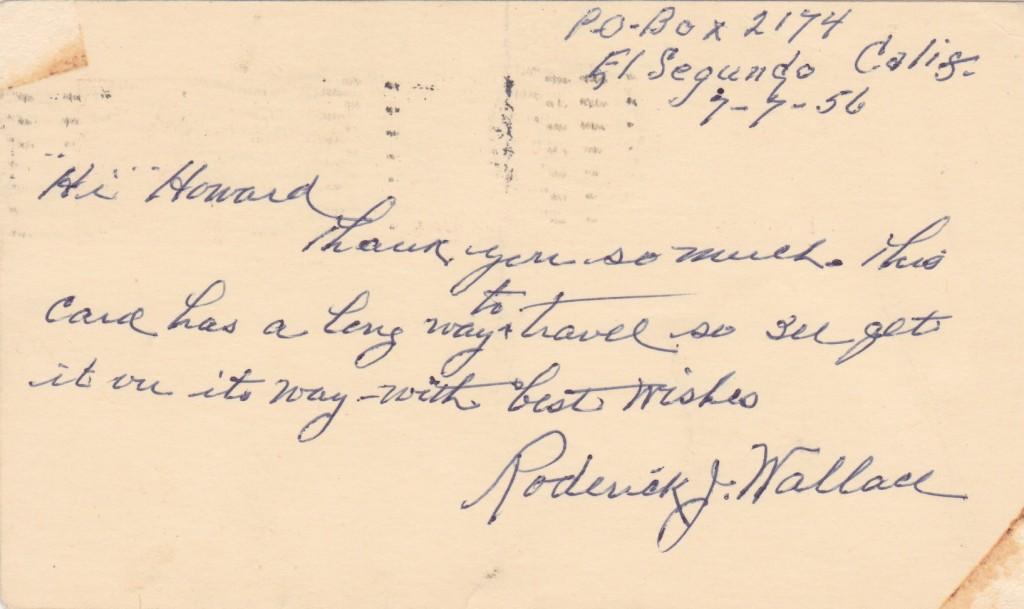 P.O-Box 2174
El Segundo Calif.
7-7-56
"Hi" Howard
Thank you so much. This
card has a long way to travel so I'll get
it on its way - with best wishes
Roderick J. Wallace